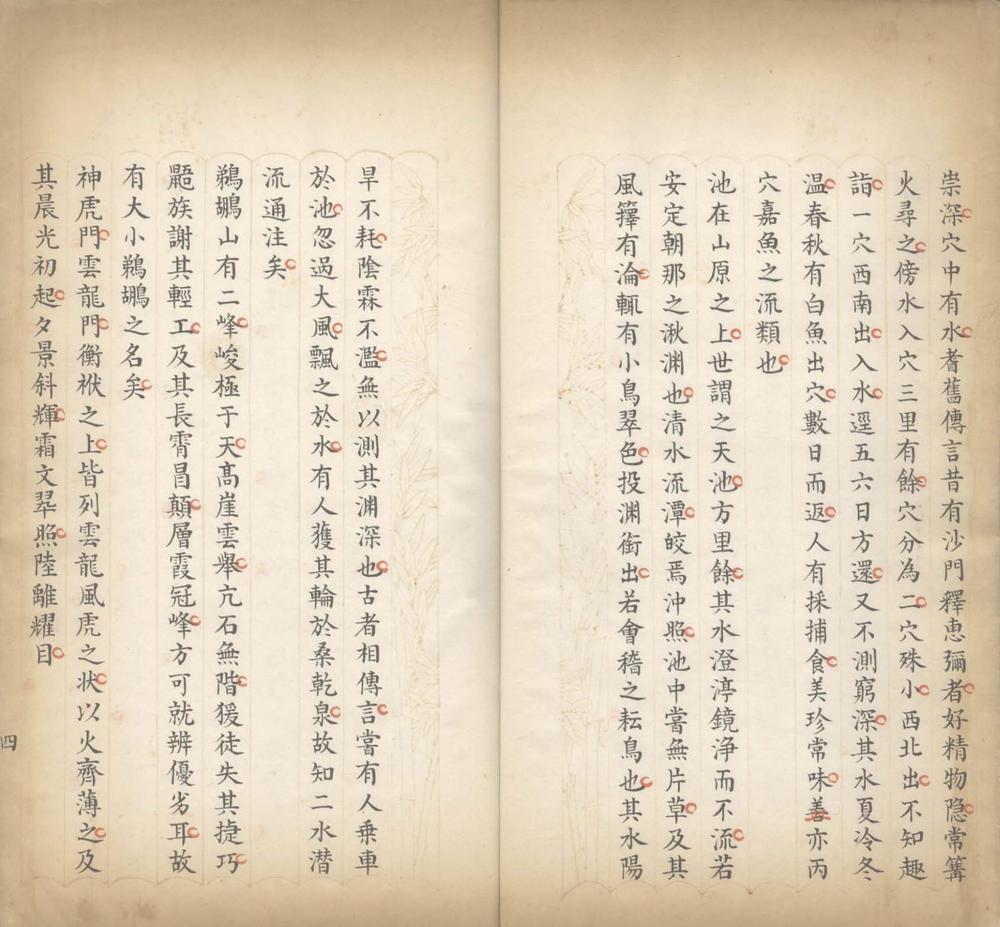 崇深穴中有水耆舊傳言昔有沙門釋惠彌者好精物隐常篝
火尋之傍水入穴三里有餘穴分為二穴殊小西北出不知趣
詣一穴西南出入水逕五六日方還又不測窮深其水夏冷冬
温春秋有白魚出穴數日而返人有採捕食美珍常味善亦丙
穴嘉魚之流類也
池在山原之上世謂之天池方里餘其水澄渟鏡净而不流若
安定朝那之湫渊也清水流潭皎焉沖照池中嘗無片草及其
風籜有淪輒有小鳥翠色投渊銜出若會稽之耘鳥也其水陽
旱不耗陰霖不濫無以測其渊深也古者相傳言嘗有人乗車
於池忽過大風飄之於水有人獲其輪於桑乾泉故知二水潜
流通注矣
鵜鶘山有二峰峻極于天髙崖雲舉亢石無階猨徒失其捷巧
鼯族謝其輕工及其長霄冒顛層霞冠峰方可就辨優劣耳故
有大小鵜鶘之名矣
神虎門雲龍門衡栿之上皆列雲龍風虎之状以火齊薄之及
其晨光初起夕景斜輝霜文翠照陸離耀目
四